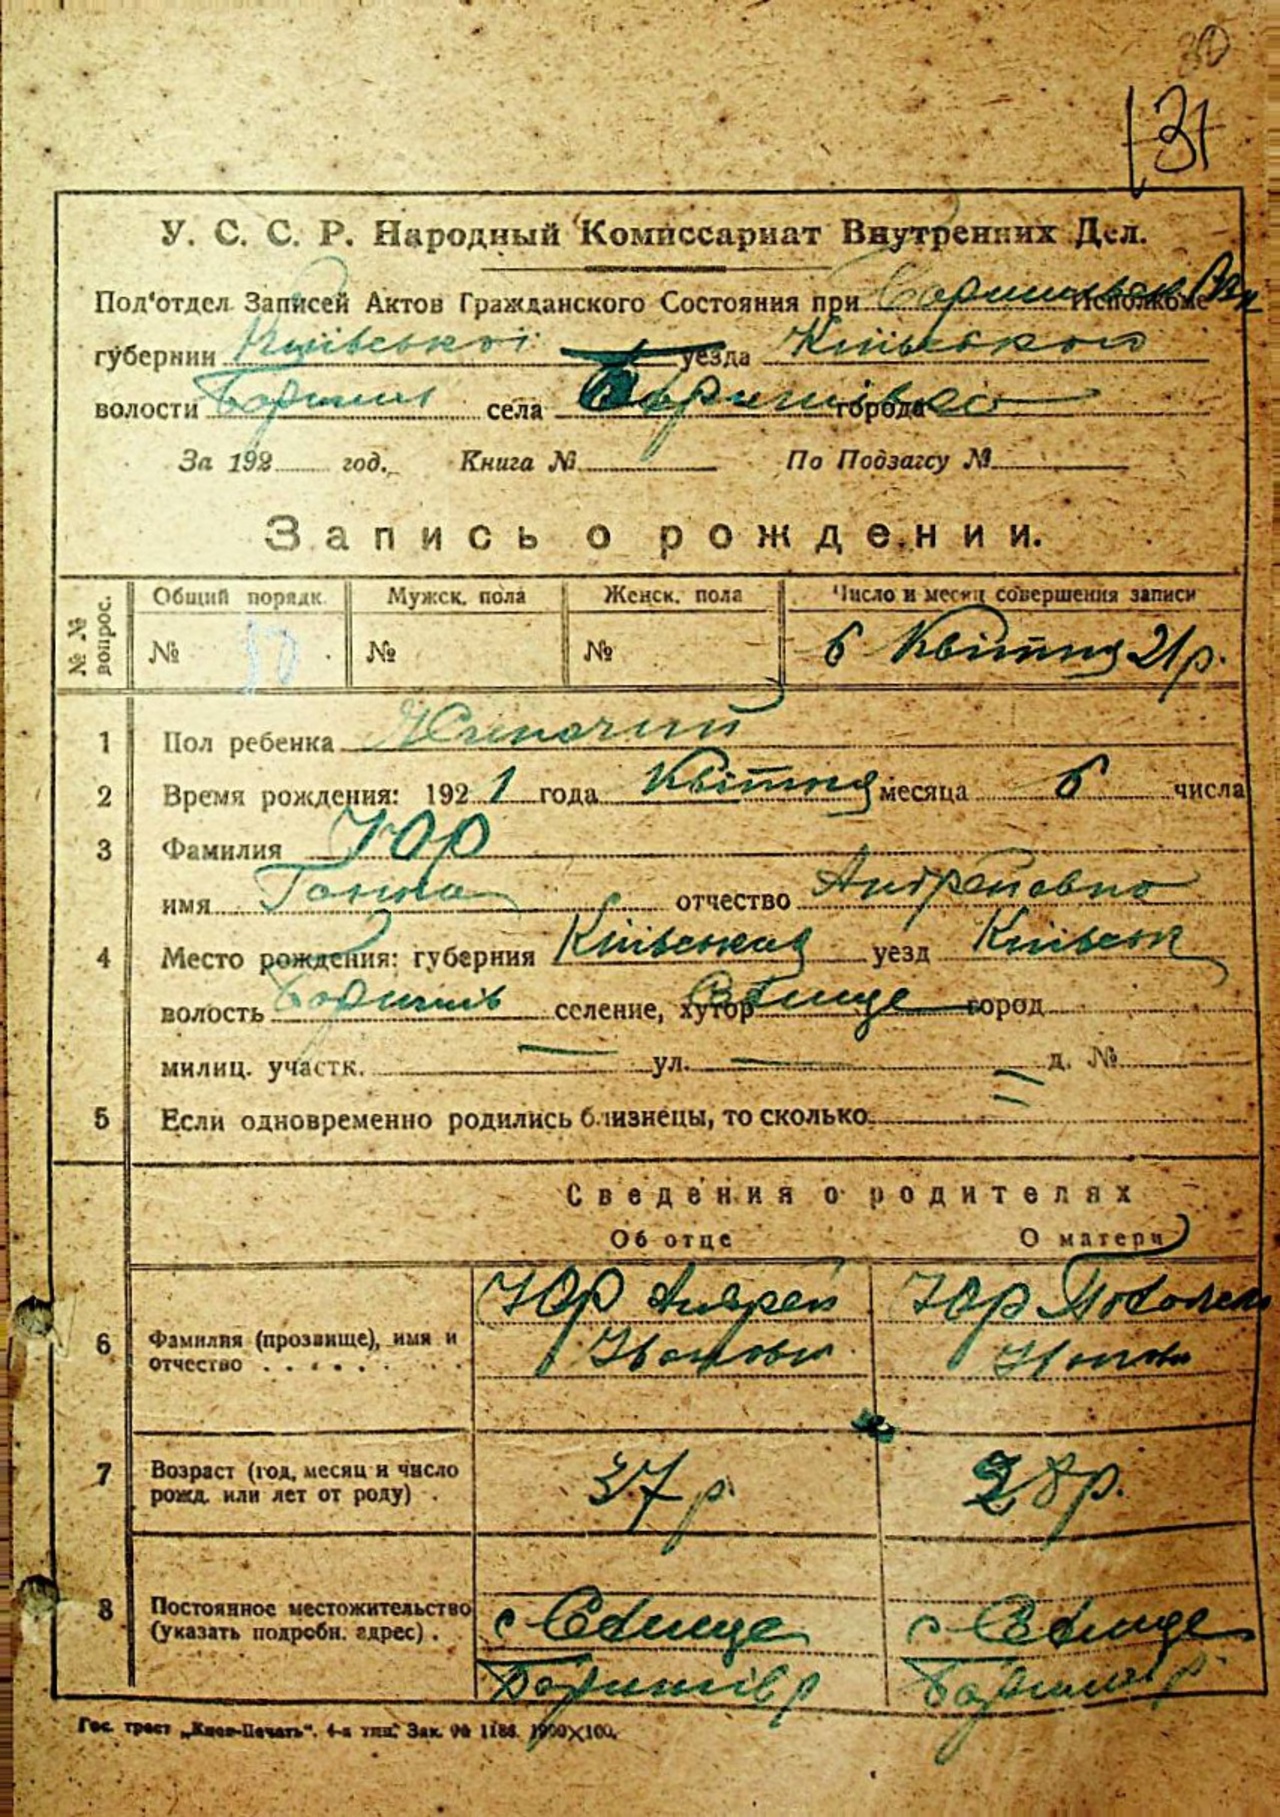 30
131
У. С. С. Р. Народный Комиссариат Внутренних Дел.
Под'отдел Записей Актов Гражданского Состояния при Исполкоме
губернии Київської уезда Київської
волости Бориш села Баришівка города
За 192 год. Книга № По Подзагсу №
Запись о рождении.
№ № вопрос. Общий порядк. Мужск. пола Женск. пола Число и месяц совершения записи
№ 50 № № 6 Квітня 21 р.
1 Пол ребенка Жиночий
2 Время рождения: 1921 года Квітня месяца 6 числа
3 Фамилия Юр
имя Ганна отчество Андреевна
4 Место рождения: губерния Київська уезд Київськ
волость Боришів селение, хутор Свтище город
милиц. участк. — ул. — д. №
5 Если одновременно родились близнецы, то сколько =
Сведения о родителях
Об отце О матери
6 Фамилия (прозвище), имя и отчество Юр Андрей Юр
7 Возраст (год, месяц и число рожд. или лет от роду) 37 р. 28 р.
8 Постоянное местожительство (указать подробн. адрес) с с
Гос. трест „Киев-Печать“. 4-я тип. Зак. № 1186. 1000×100.